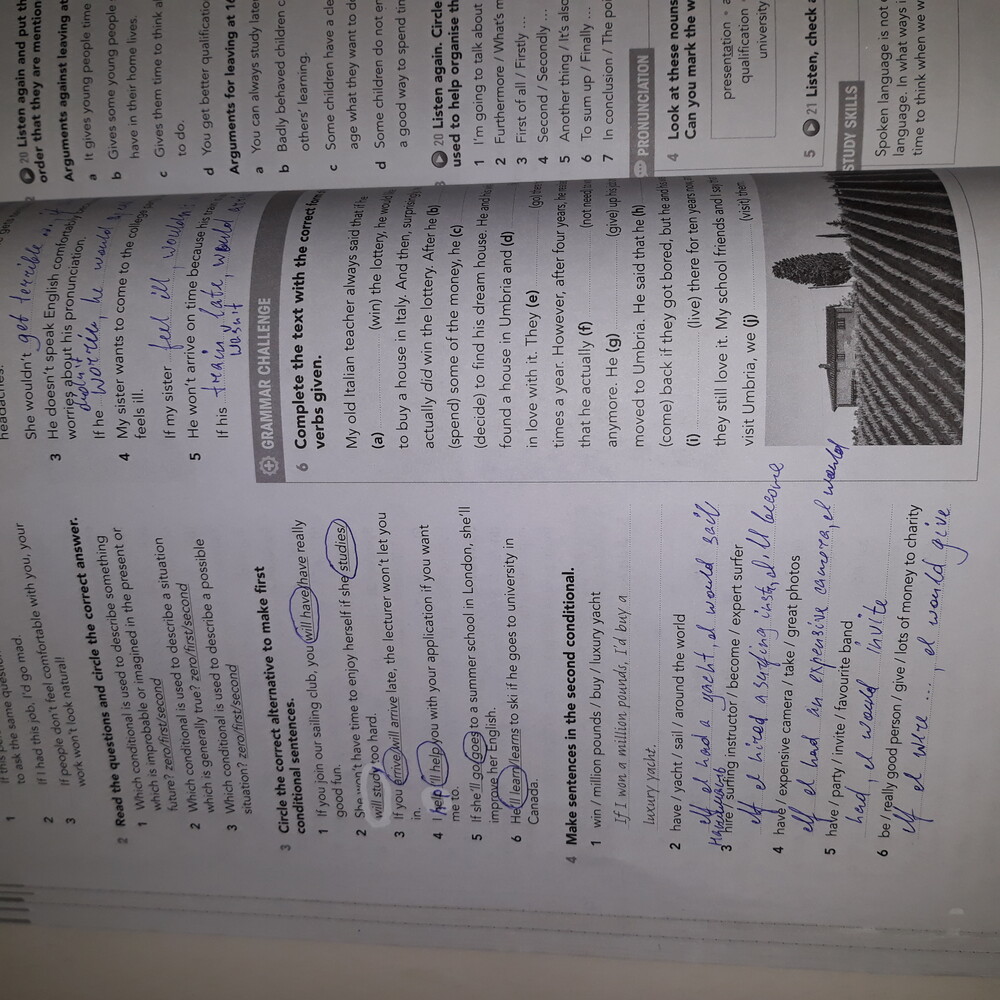 If this
to ask the same question
2 If I hard this job, I'd go mad.
3 If people don't feel comfortable with you, your
work won't look natural!
2 Read the questions and circle the correct answer.
1 Which conditional is used to describe something
which is improbable or imagined in the present or
future? zero/first/second
2 Which conditional is used to describe a situation
which is generally true? zero/first/second
3 Which conditional is used to describe a possible
situation? zero/first/second
3 Circle the correct alternative to make first
conditional sentences.
1 If you join our sailing club, you will have/have really
good fun.
2 She won't have time to enjoy herself if she studies/
will study too hard.
3 If you arrive/will arrive late, the lecturer won't let you
in.
4 I help/'ll help you with your application if you want
me to.
5 If she'll go/goes to a summer school in London, she'll
improve her English.
6 He'll learn/learns to ski if he goes to university in
Canada.
4 Make sentences in the second conditional.
1 win / million pounds / buy / luxury yacht
If I won a million pounds, I'd buy a
luxury yacht.
2 have / yacht / sail / around the world
If I had a yacht, I would sail
3 hire / surfing instructor / become / expert surfer
If I hired a surfing inst, I'll become
4 have / expensive camera / take / great photos
If I had an expensive camera, I would
5 have / party / invite / favourite band
had, I would invite
6 be / really good person / give / lots of money to charity
If I were ...., I would give
headaches.
She wouldn't get terrible
3 He doesn't speak English comfortably
worries about his pronunciation.
didn't
If he worries, he would
4 My sister wants to come to the college
feels ill.
If my sister feel ill, wouldn't
5 He won't arrive on time because his
If his train late, would
wasn't
GRAMMAR CHALLENGE
6 Complete the text with the correct
verbs given.
My old Italian teacher always said that if he
(a) (win) the lottery, he would
to buy a house in Italy. And then, surprisingly
actually did win the lottery. After he (b)
(spend) some of the money, he (c)
(decide) to find his dream house. He and
found a house in Umbria and (d)
in love with it. They (e) (go) there
times a year. However, after four years, he
that he actually (f) (not need)
anymore. He (g) (give) up his
moved to Umbria. He said that he (h)
(come) back if they got bored, but he and
(i) (live) there for ten years
they still love it. My school friends and I
visit Umbria, we (j) (visit) them
20 Listen again and put the
order that they are mention
Arguments against leaving at
a It gives young people time
b Gives some young people
have in their home lives.
c Gives them time to think
to do.
d You get better qualification
Arguments for leaving at 16
a You can always study later
b Badly behaved children
others' learning.
c Some children have a
age what they want to
d Some children do not
a good way to spend
20 Listen again. Circle
used to help organise
1 I'm going to talk about
2 Furthermore / What's
3 First of all / Firstly ...
4 Second / Secondly ...
5 Another thing / It's also
6 To sum up / Finally ...
7 In conclusion / The
PRONUNCIATION
4 Look at these nouns
Can you mark the
presentation
qualification
university
5 21 Listen, check
STUDY SKILLS
Spoken language is not
language. In what ways
time to think when we